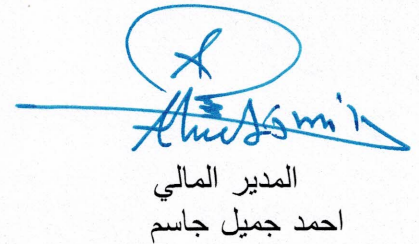 المدير المالي
احمد جميل جاسم